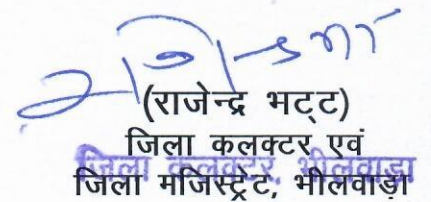 (राजेन्द्र भट्ट)
जिला कलक्टर एवं
जिला कलक्टर, भीलवाड़ा
जिला मजिस्ट्रेट, भीलवाड़ा